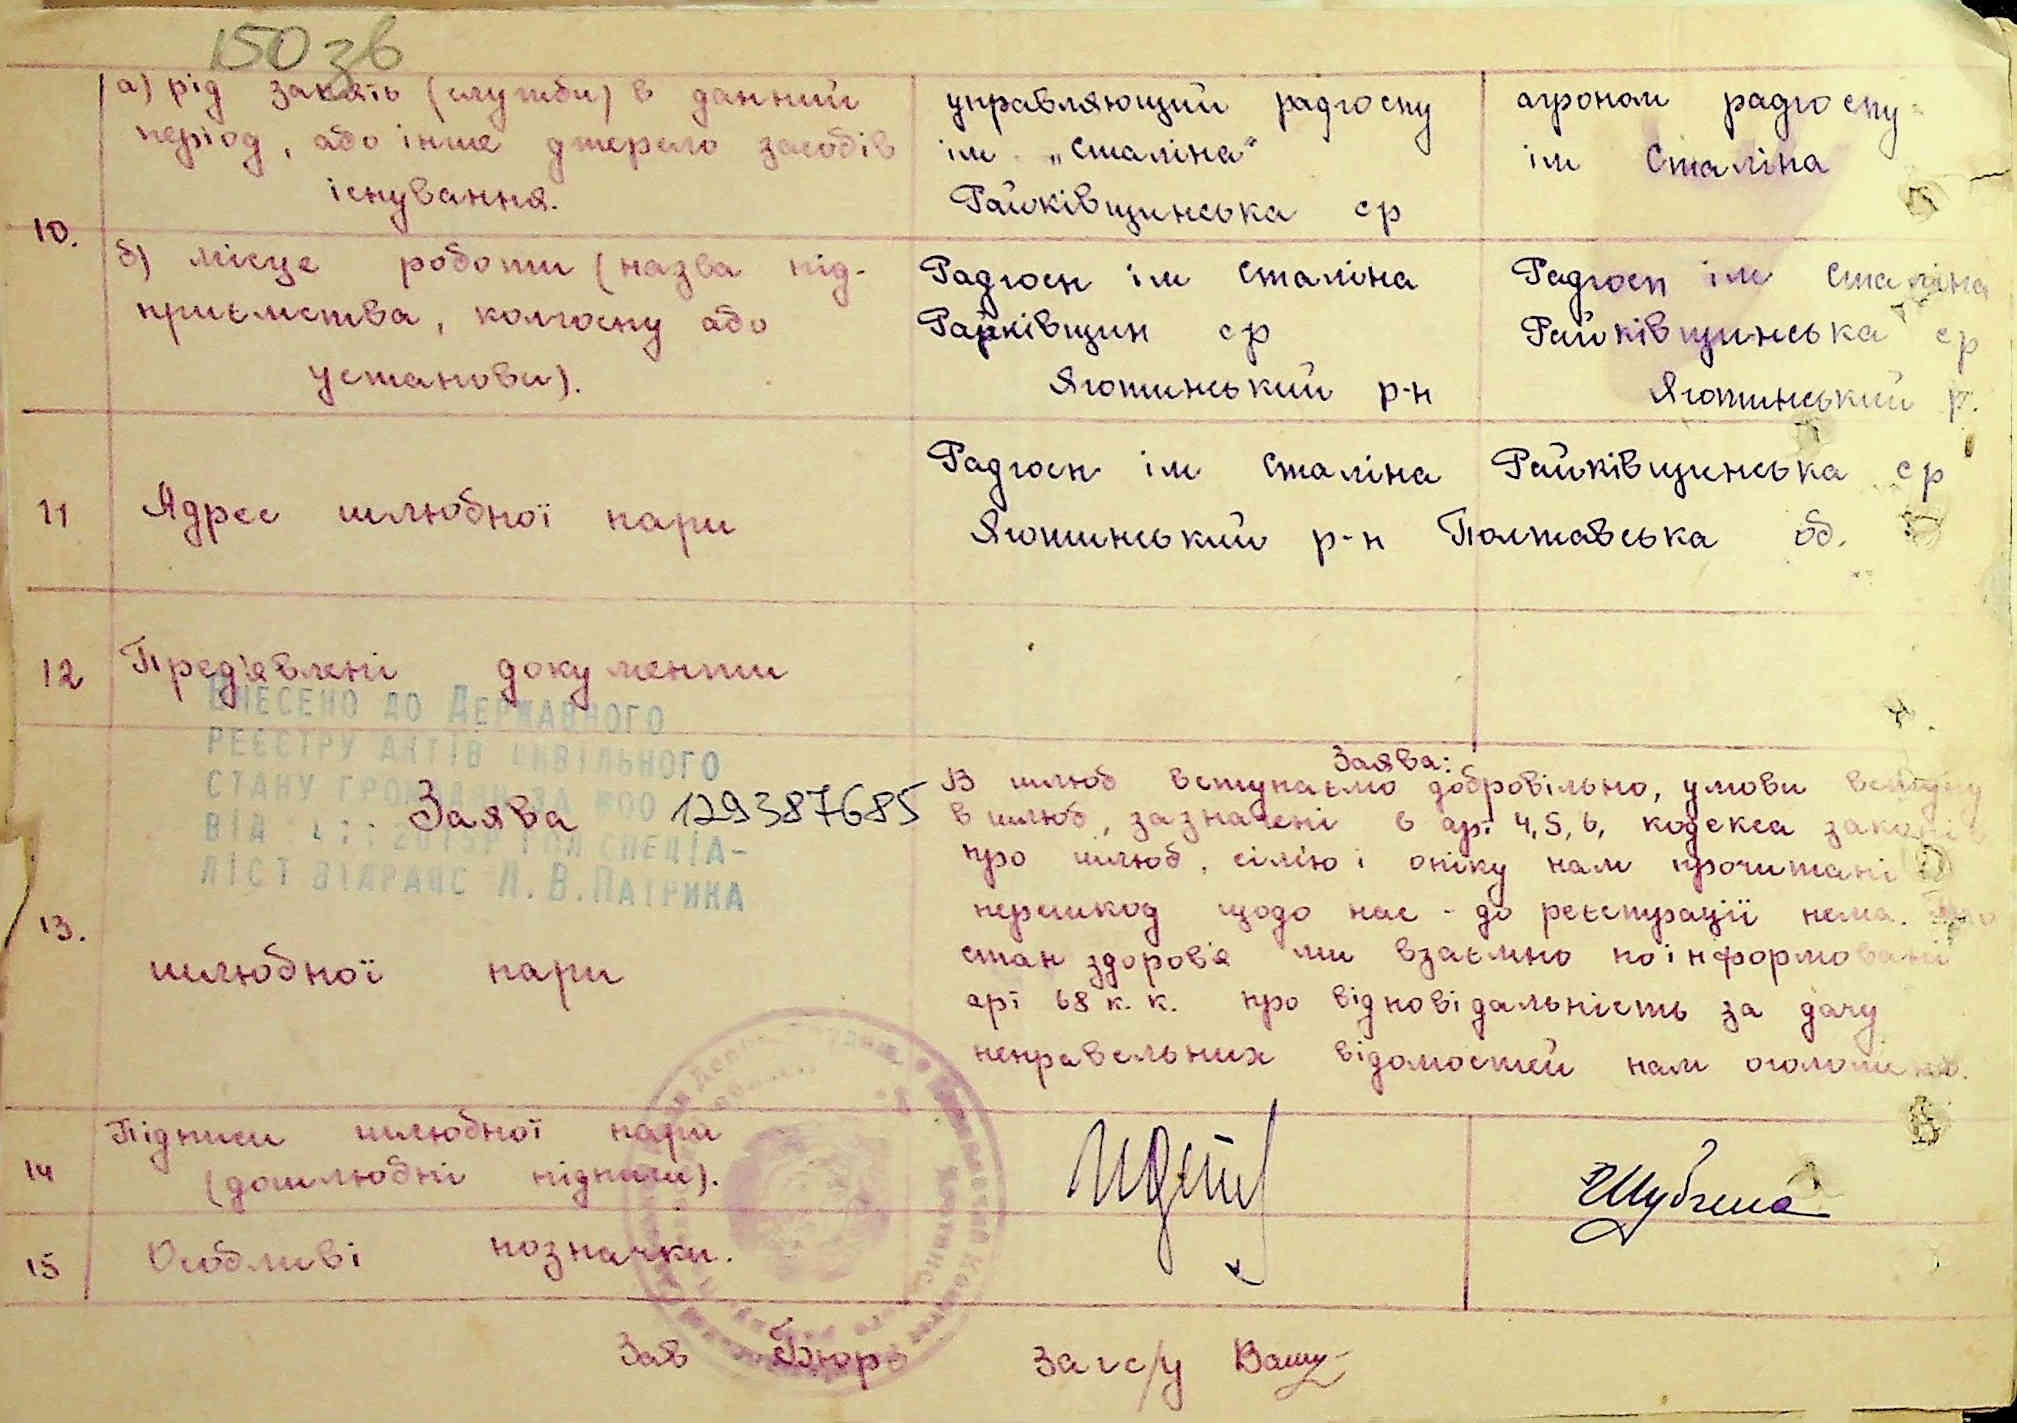 150 зв
а) рід занять (служби) в данний
період, або інше джерело засобів
існування.
управляющий радгоспу
ім. „Сталіна"
Райківщинська ср
агроном радгоспу
ім Сталіна
10.
б) місце роботи (назва під-
приємства, колгоспу або
установи).
Радгосп ім Сталіна
Райківщин ср
Яготинський р-н
Радгосп ім Сталіна
Райківщинська ср
Яготинський р.
11 Адрес шлюбної пари
Радгосп ім Сталіна Райківщинська ср
Яготинський р-н Полтавська об.
12 Пред'явлені документи
ВНЕСЕНО ДО ДЕРЖАВНОГО
РЕЄСТРУ АКТІВ ЦИВІЛЬНОГО
СТАНУ ГРОМАДЯН ЗА №00
ВІД 2015Р ГОЛ СПЕЦІА-
ЛІСТ ВІДРАЦС Л.В.ПАТРИКА
13. Заява 129387685
шлюбної пари
Заява:
В шлюб вступаємо добровільно, умови вступу
в шлюб, зазначені в арт. 4, 5, 6, кодекса законів
про шлюб, сім'ю і опіку нам прочитані
перешкод щодо нас - до реєстрації нема. Про
стан здоров'я ми взаємно поінформовані
арт 68 к. к. про відповідальність за дачу
неправельних відомостей нам оголошено.
14 Підписи шлюбної пари
(дошлюбні підписи).
15 Особливі позначки.
Зав Бюро загс/у